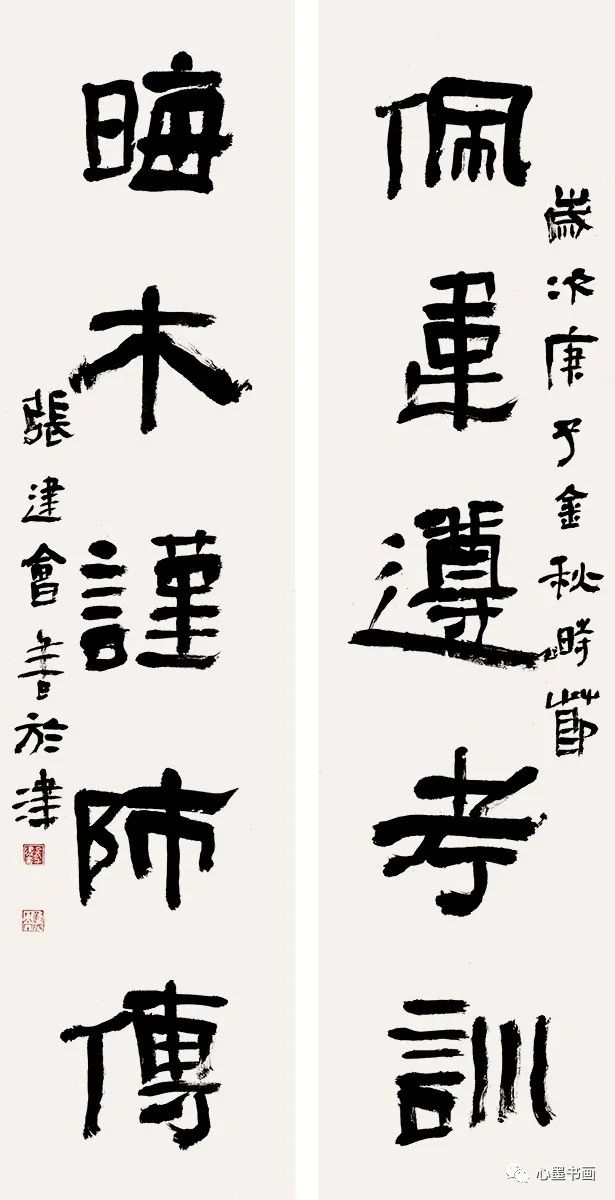 歲次庚子金秋時節
佩韋遵考訓
晦木謹師傳
張建會書於津
心墨书画